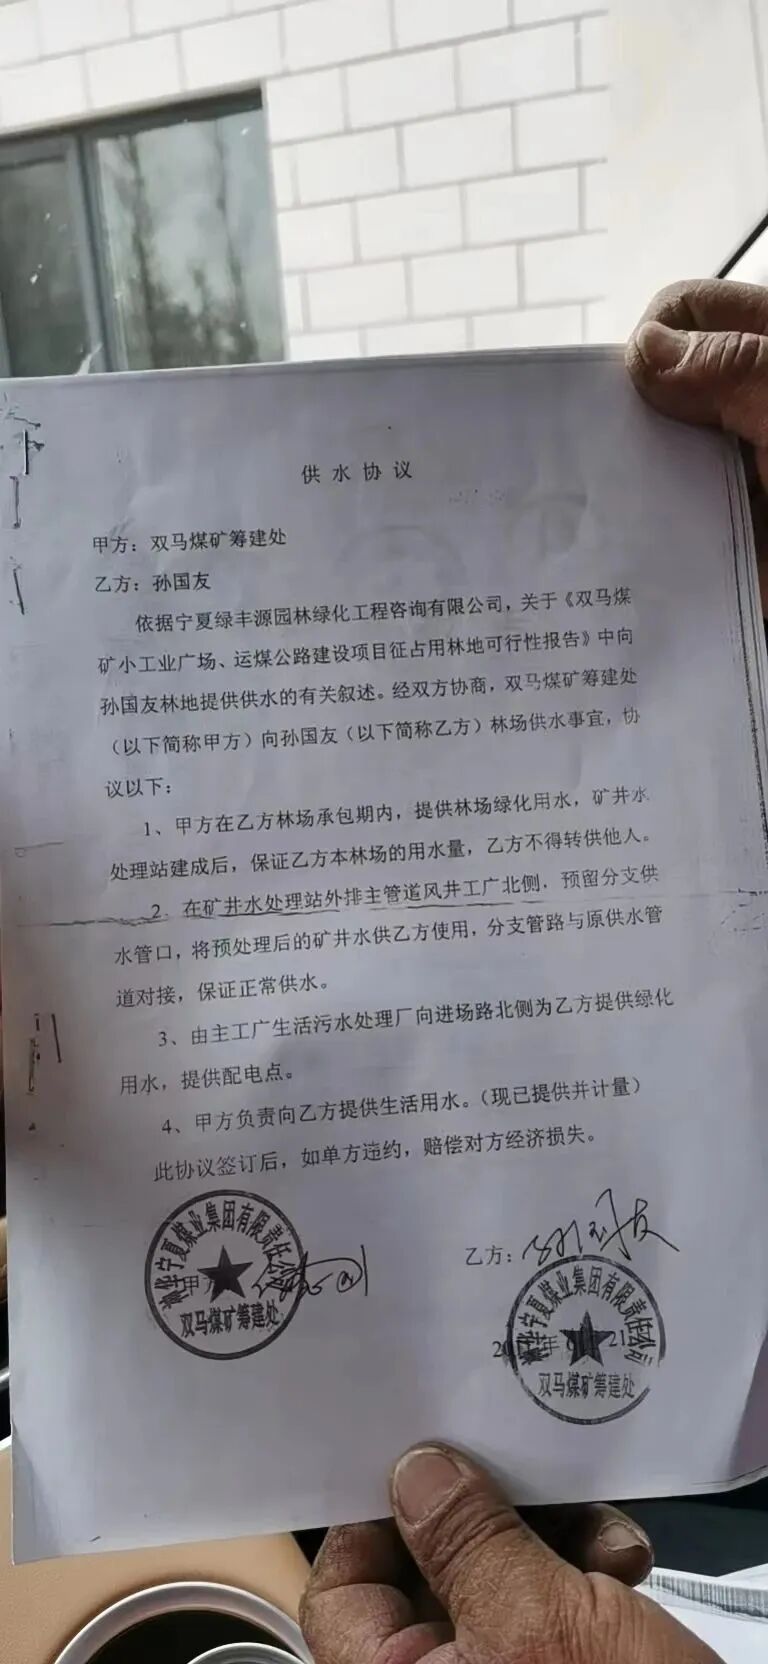 供水协议
甲方：双马煤矿筹建处
乙方：孙国友
依据宁夏绿丰源园林绿化工程咨询有限公司，关于《双马煤
矿小工业广场、运煤公路建设项目征占用林地可行性报告》中向
孙国友林地提供供水的有关叙述。经双方协商，双马煤矿筹建处
（以下简称甲方）向孙国友（以下简称乙方）林场供水事宜，协
议以下：
1、甲方在乙方林场承包期内，提供林场绿化用水，矿井水
处理站建成后，保证乙方本林场的用水量，乙方不得转供他人。
2、在矿井水处理站外排主管道风井工广北侧，预留分支供
水管口，将预处理后的矿井水供乙方使用，分支管路与原供水管
道对接，保证正常供水。
3、由主工广生活污水处理厂向进场路北侧为乙方提供绿化
用水，提供配电点。
4、甲方负责向乙方提供生活用水。（现已提供并计量）
此协议签订后，如单方违约，赔偿对方经济损失。
甲方
神华宁夏煤业集团有限责任公司
双马煤矿筹建处
乙方：孙国友
年 21
神华宁夏煤业集团有限责任公司
双马煤矿筹建处